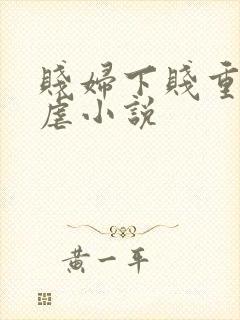 賤婦下賤重
虐小說
黃一平